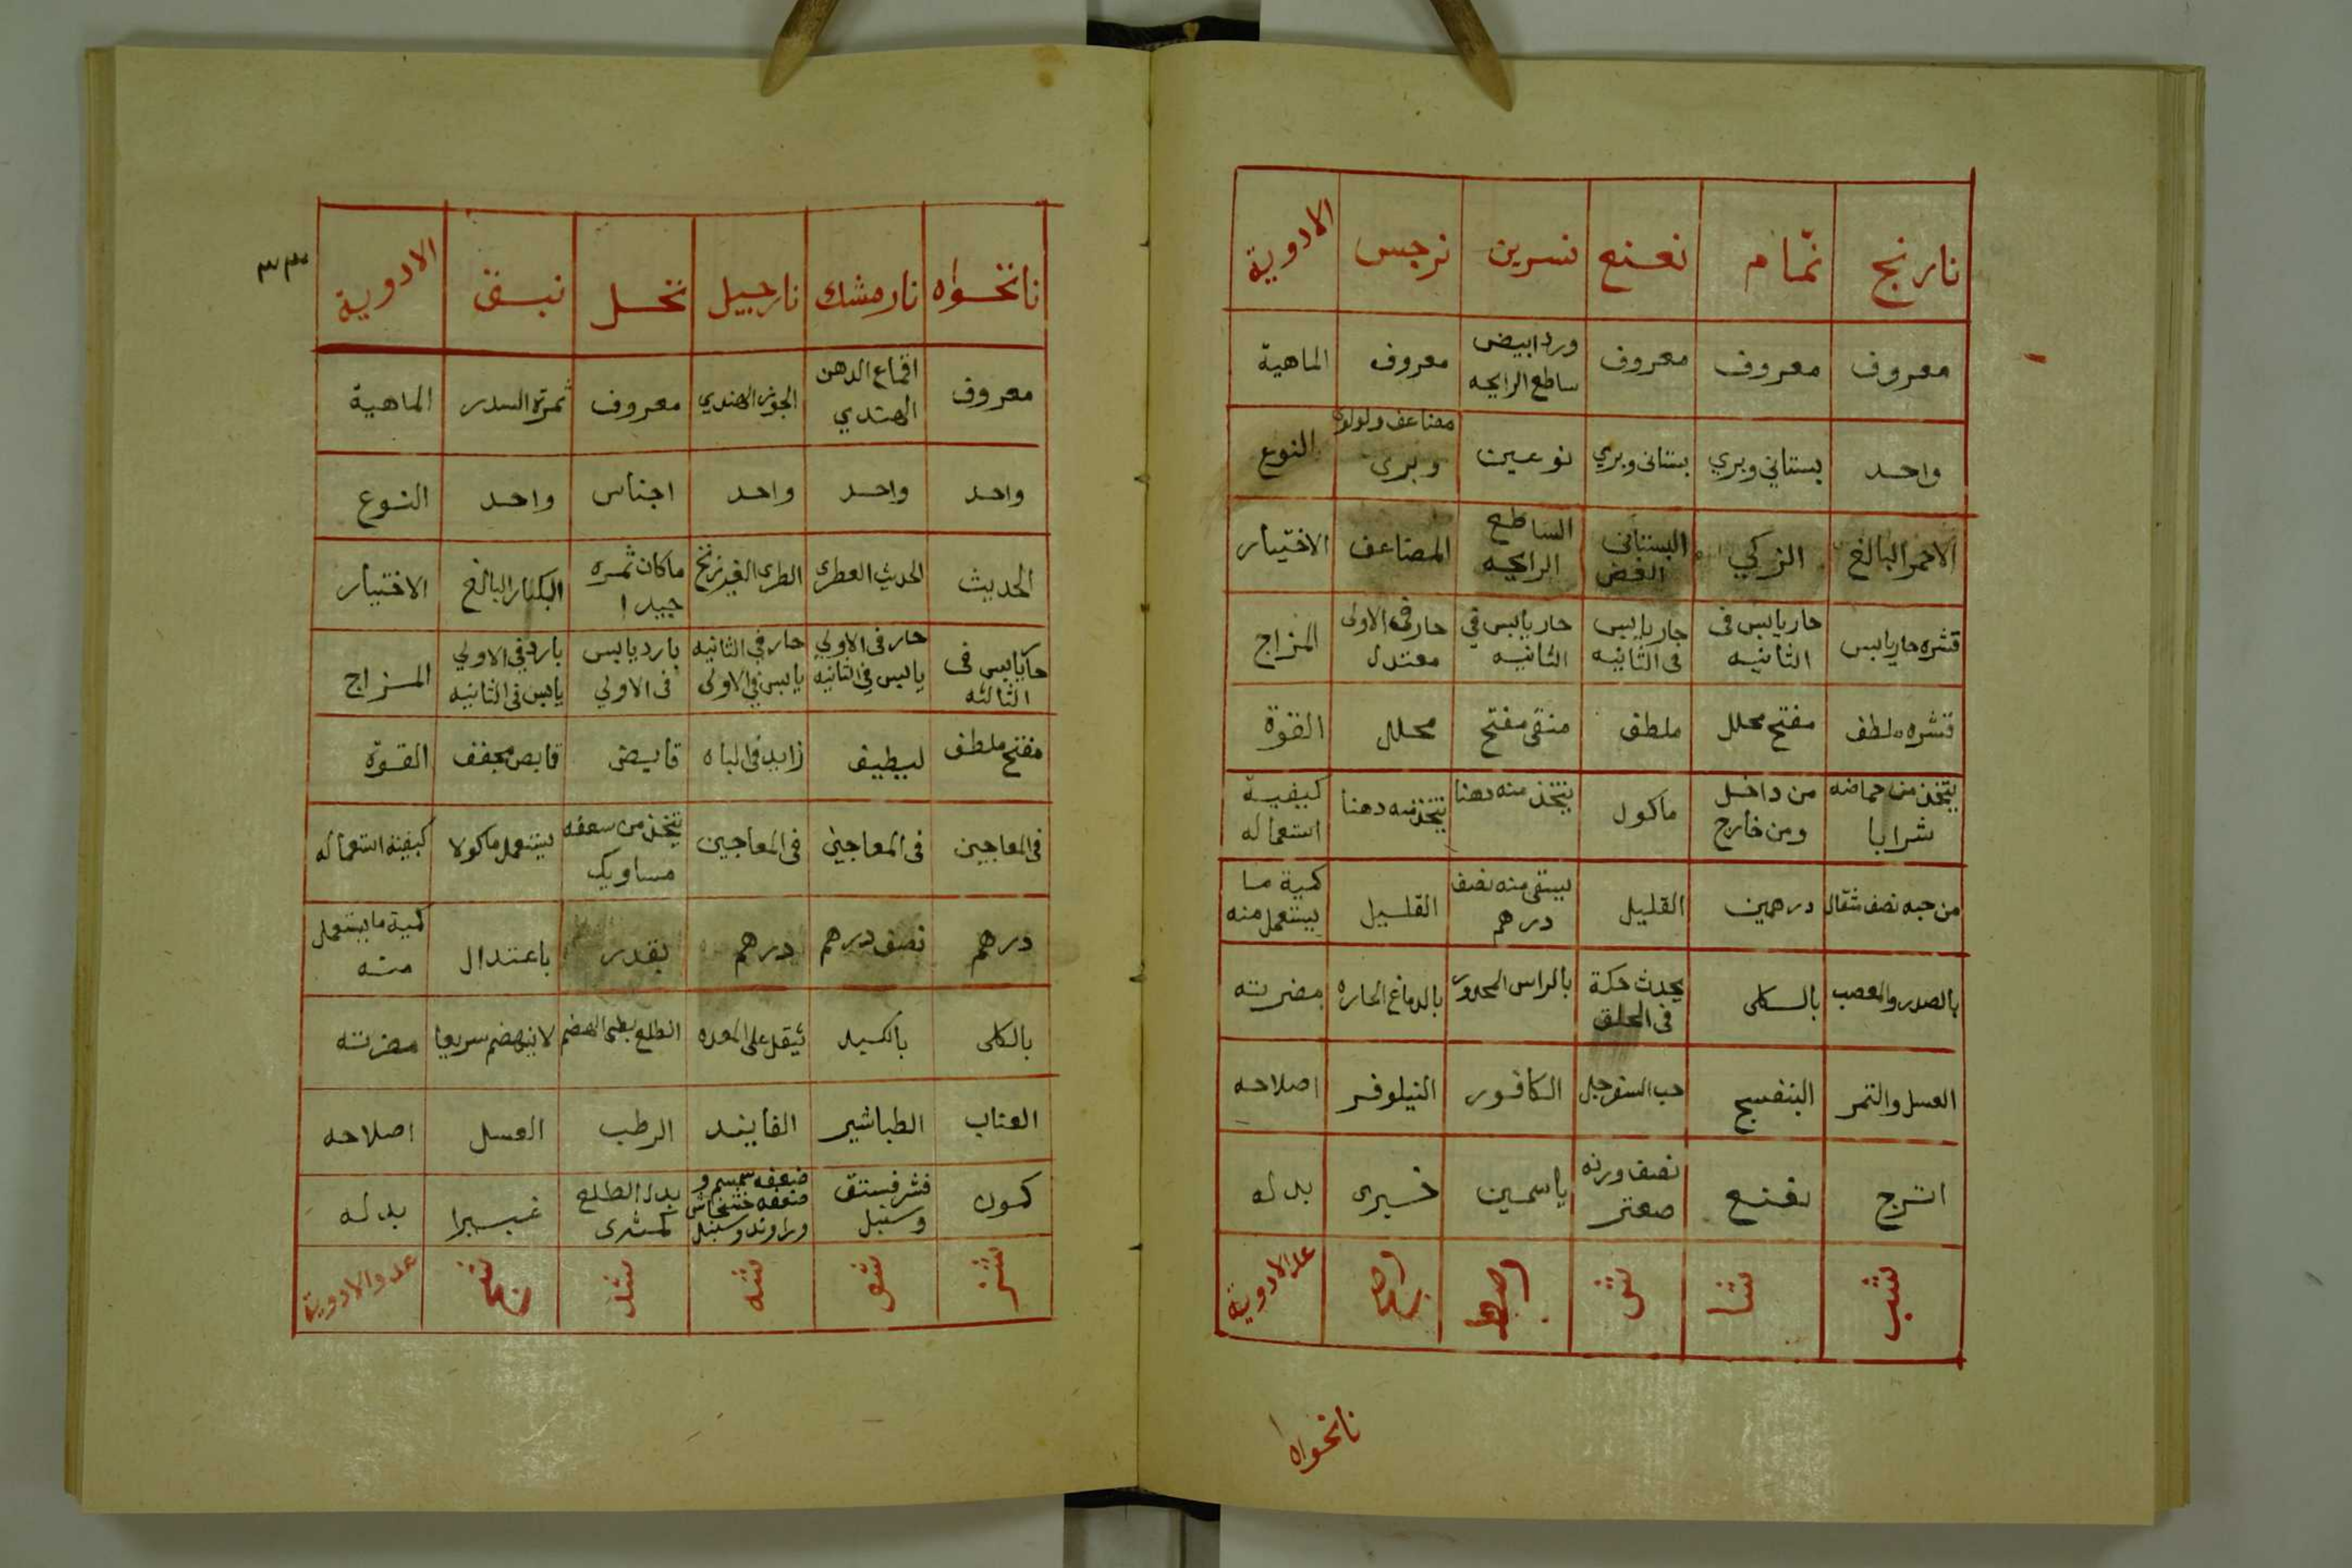 نارنج نمّام نعنع نسرين نرجس الادوية
معروف معروف معروف ورد ابيض ساطع الرايحه معروف الماهية
واحد بستاني وبري بستانى وبري نوعين مضاعف وبرى النوع
الاحمر البالغ الزكي البستانى الغض الساطع الرايحه المضاعف الاختيار
قشره حار يابس حار يابس فى الثانيه حار يابس فى الثانيه حار يابس في الثانيه حار فى الاولى معتدل المزاج
قشره ملطف مفتح محلل ملطف منقى مفتح محلل القوة
يتخذ من حماضه شرابا من داخل ومن خارج ماكول يتخذ منه دهنا يتخذ منه دهنا كيفية استعماله
من حبه نصف مثقال درهمين القليل يسقى منه نصف درهم القليل كمية ما يستعمل منه
بالصدر والعصب بالكلى يحدث حكة فى الحلق بالراس المحرور بالدماغ الحاره مضرته
العسل والتمر البنفسج حب السفرجل الكافور النيلوفر اصلاحه
اترج نعنع نصف وزنه صعتر ياسمين خيرى بدله
شب شا ش عدد الادوية
نانخواه
٣٣
نانخواه نارمشك نارجيل نخل نبق الادوية
معروف اقماع الدهن الهندي الجوز الهندي معروف ثمرة السدر الماهية
واحد واحد واحد اجناس واحد النوع
الحديث الحديث العطرى الطرى الغير زنخ ماكان ثمره جيدا الكبار البالغ الاختيار
حار يابس فى الثالثه حار فى الاولي يابس في الثانيه حار في الثانيه يابس في الاولى بارد يابس فى الاولي بارد في الاولي يابس فى الثانيه المزاج
مفتح ملطف لطيف زايد فى الباه قابض قابض مجفف القوّة
فى المعاجين فى المعاجين فى المعاجين يتخذ من سعفه مساويك يستعمل ماكولا كيفية استعماله
درهم نصف درهم درهم بقدر باعتدال كمية ما يستعمل منه
بالكلى بالكبد يثقل على المعده الطلع بطى الهضم لاينهضم سريعا مضرته
العناب الطباشير الفانيد الرطب العسل اصلاحه
كمون قشر فستق وسنبل ضعفه سمسم و ضعفه خشخاش وراوند وسنبل بدل الطلع كمثرى غبيرا بدله
شز شو شه شد عدد الادوية